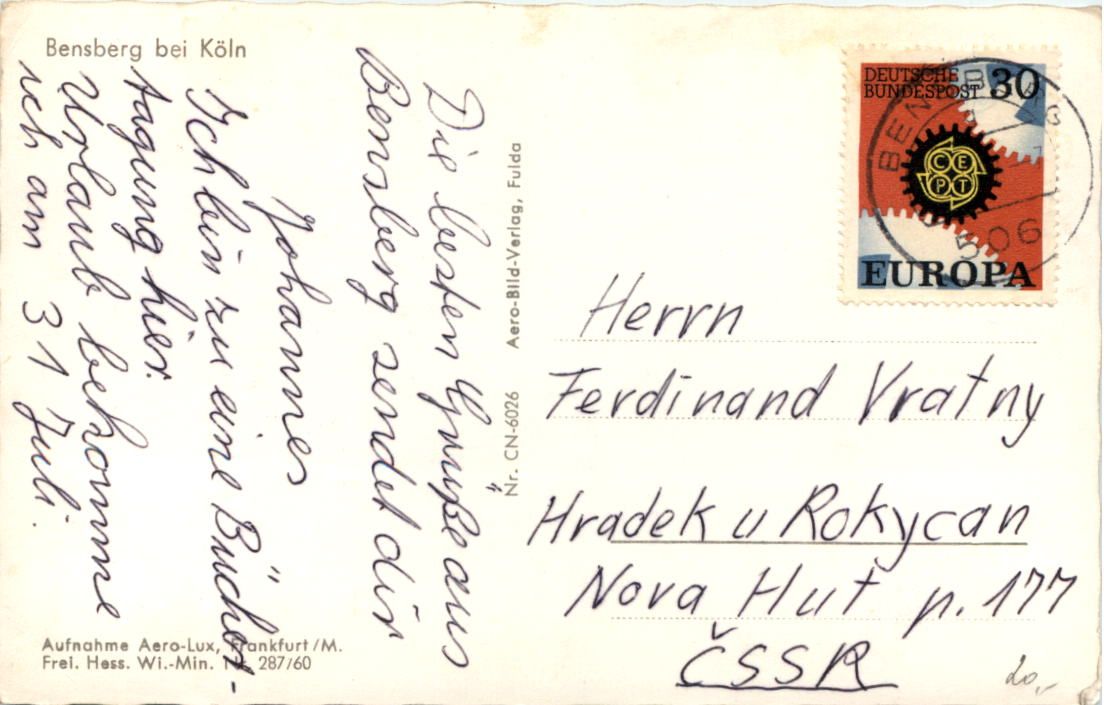 Bensberg bei Köln
Die besten Grüße aus
Bensberg sendet dir
Johannes
Ich bin zu eine Bücher-
tagung hier.
Urlaub bekomme
ich am 31 Juli.
Aufnahme Aero-Lux, Frankfurt/M.
Frei. Hess. Wi.-Min. Nr. 287/60
Nr. CN-6026 Aero-Bild-Verlag, Fulda
DEUTSCHE
BUNDESPOST 30
CE
PT
EUROPA
BENSBERG
506
Herrn
Ferdinand Vratny
Hradek u Rokycan
Nova Hut p. 177
ČSSR
20,-